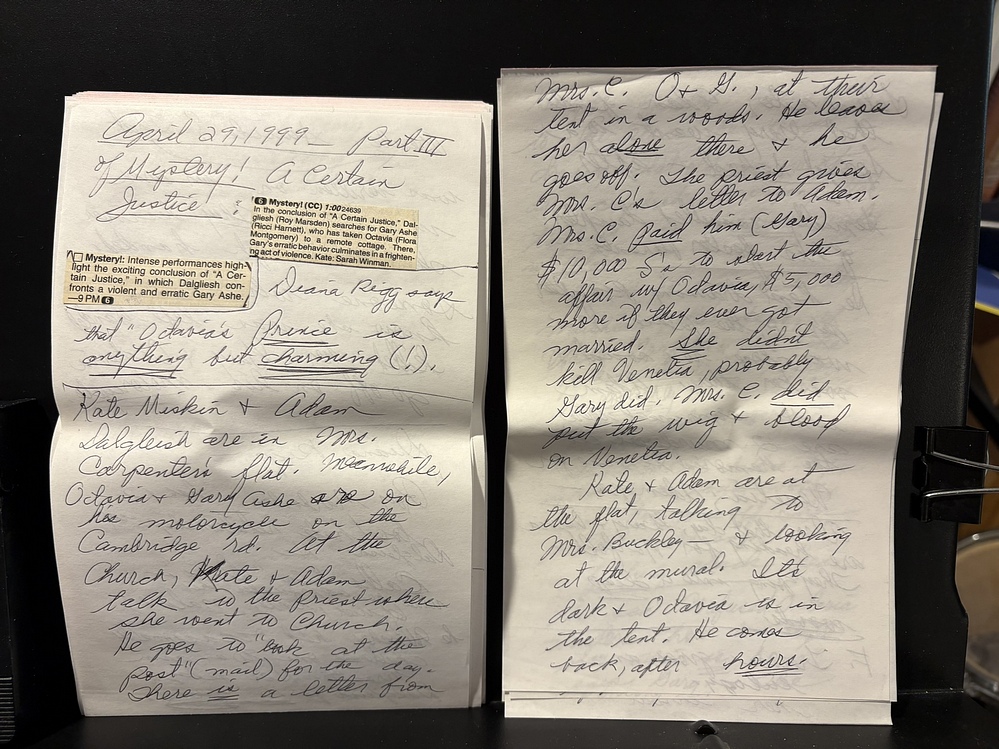 April 29, 1999 — Part III
of Mystery! A Certain
Justice:
6 Mystery! (CC) 1:00 24639
In the conclusion of "A Certain Justice," Dal-
gliesh (Roy Marsden) searches for Gary Ashe
(Ricci Harnett), who has taken Octavia (Flora
Montgomery) to a remote cottage. There,
Gary's erratic behavior culminates in a frighten-
ing act of violence. Kate: Sarah Winman.
Mystery!: Intense performances high-
light the exciting conclusion of "A Cer-
tain Justice," in which Dalgliesh con-
fronts a violent and erratic Gary Ashe.
—9 PM 6
Diana Rigg says
that "Octavia's Prince is
anything but charming (!).
Kate Miskin & Adam
Dalgleish are in Mrs.
Carpenter's flat. Meanwhile,
Octavia & Gary Ashe are on
his motorcycle on the
Cambridge rd. At the
Church, Kate & Adam
talk to the Priest where
she went to Church.
He goes to "look at the
post" (mail) for the day.
There is a letter from
Mrs. C. O & G., at their
tent in a woods. He leaves
her alone there & he
goes off. The priest gives
Mrs. C's letter to Adam.
Mrs. C. paid him (Gary)
$10,000 $'s to start the
affair w/ Octavia, $5,000
more if they ever got
married. She didn't
kill Venetia, probably
Gary did. Mrs. C. did
put the wig & blood
on Venetia.
Kate & Adam are at
the flat, talking to
Mrs. Buckley — & looking
at the mural. It's
dark & Octavia is in
the tent. He comes
back, after hours.